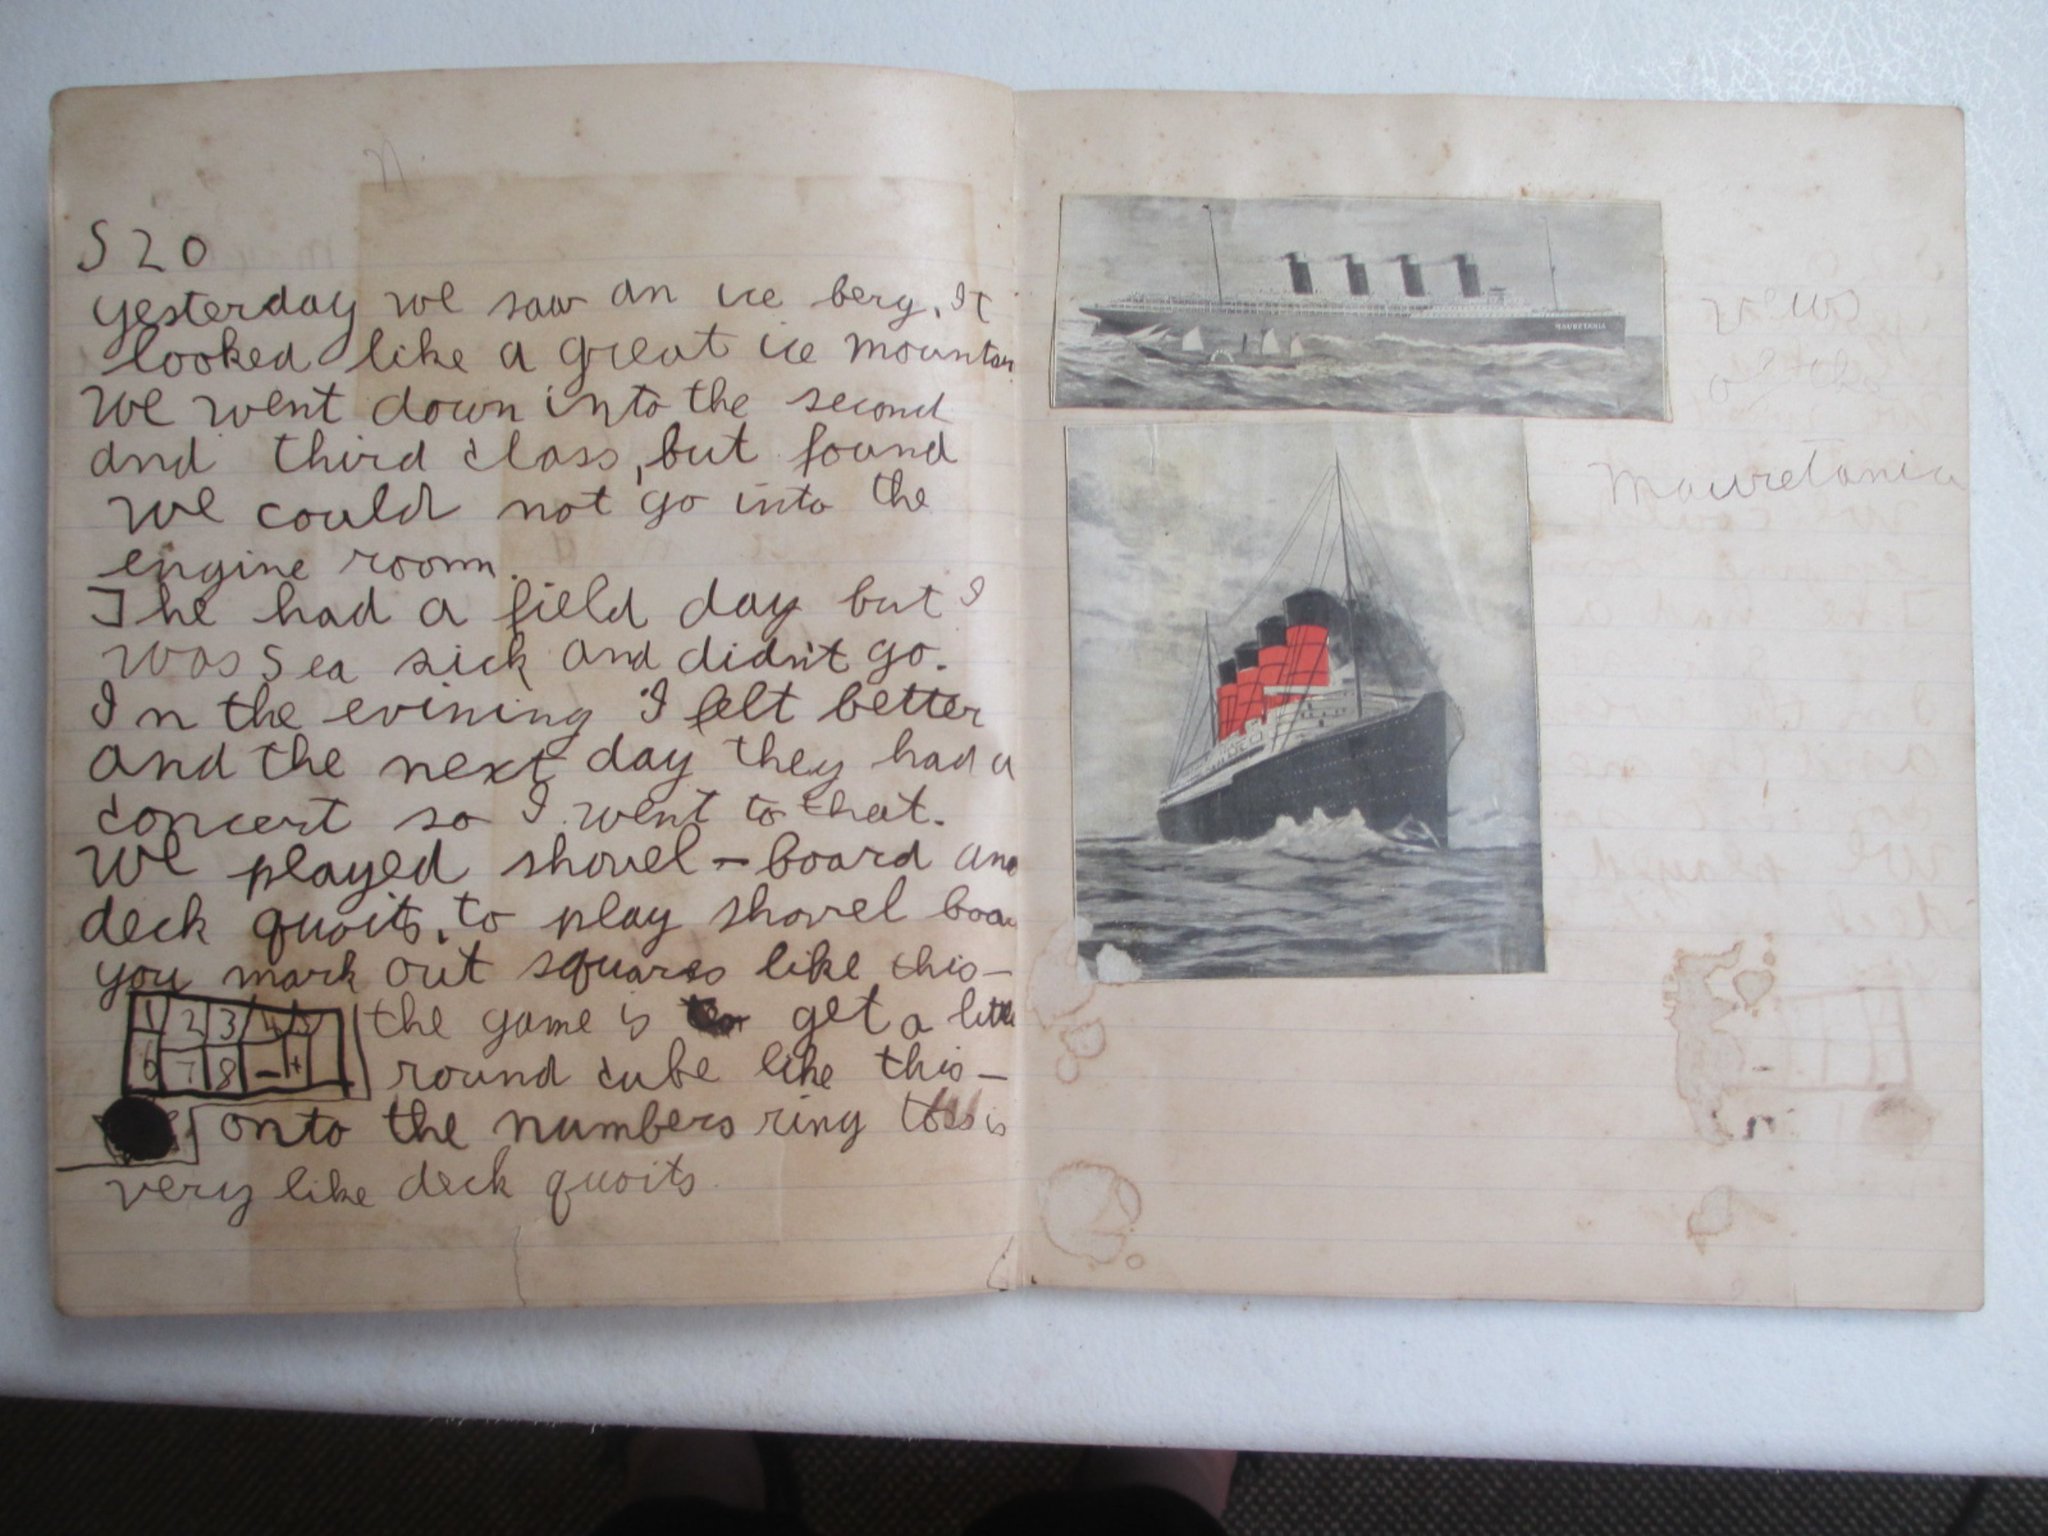 S 20
yesterday we saw an ice berg. It
looked like a great ice mountain
We went down into the second
and third class, but found
we could not go into the
engine room.
The had a field day but I
was sea sick and didn't go.
In the evining I felt better
and the next day they had a
concert so I went to that.
We played shovel-board and
deck quoits. to play shovel boa
you mark out squares like this-
1 2 3 4 5 the game is get a little
6 7 8 - + round cube like this-
onto the numbers ring toss is
very like deck quoits
MAURETANIA
views
of the
Mauretania